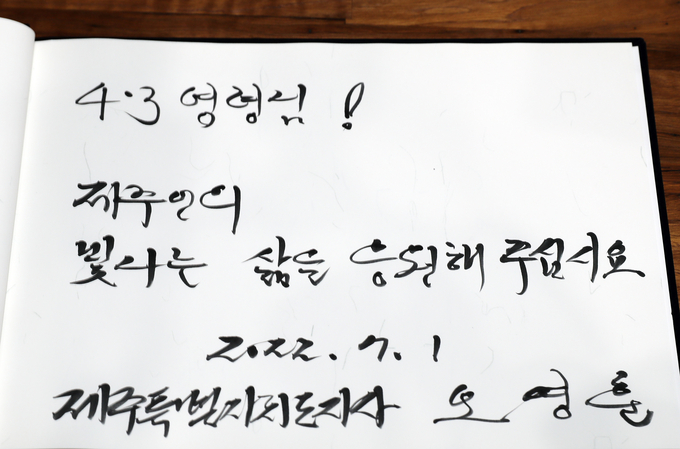 4·3 영령님!
제주인의
빛나는 삶을 응원해 주십시요
2022. 7. 1
제주특별자치도지사 오영훈